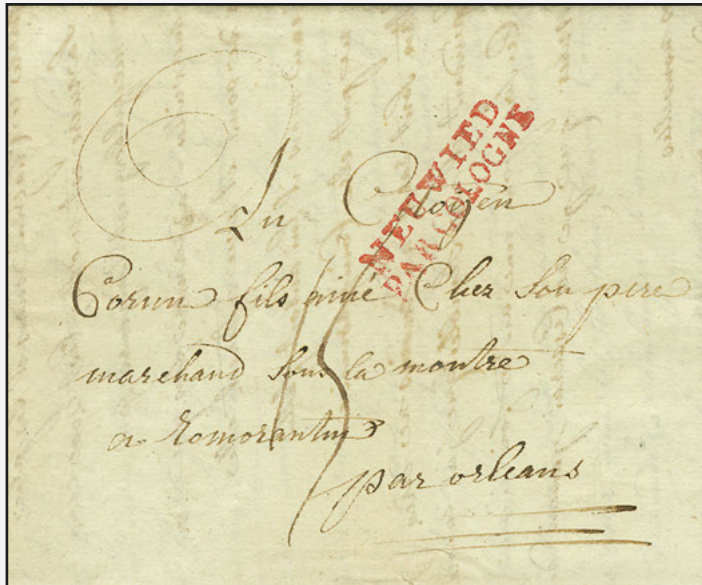 NEUWIED
PAR COLOGNE
Au Citoyen
fils ainé Chez Son pere
marchand Sous la montre
a Romorantin
par orleans
15